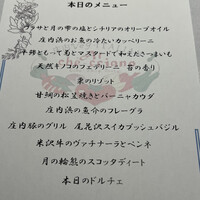 本日のメニュー
ワラサと月の雫の塩とシチリアのオリーブオイル
庄内浜のお魚の冷たいカッペリーニ
平穂ともって菊とマスタードで和えたさつまいも
天然キノコのフェデリーニ 苔の香り
栗のリゾット
甘鯛の松笠焼きとバーニャカウダ
庄内浜の魚介のフレーグラ
庄内豚のグリル 尾花沢スイカプッシュバジル
米沢牛のヴッチナーラとペンネ
月の輪熊のスコッタディート
本日のドルチェ